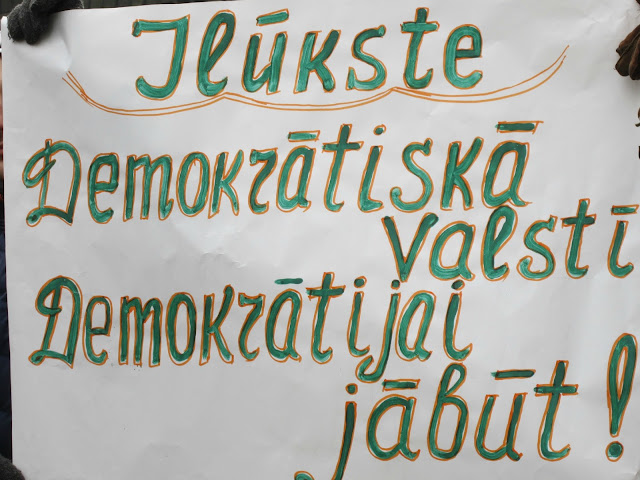 Ilūkste
Demokrātiskā
valstī
Demokrātijai
jābūt!